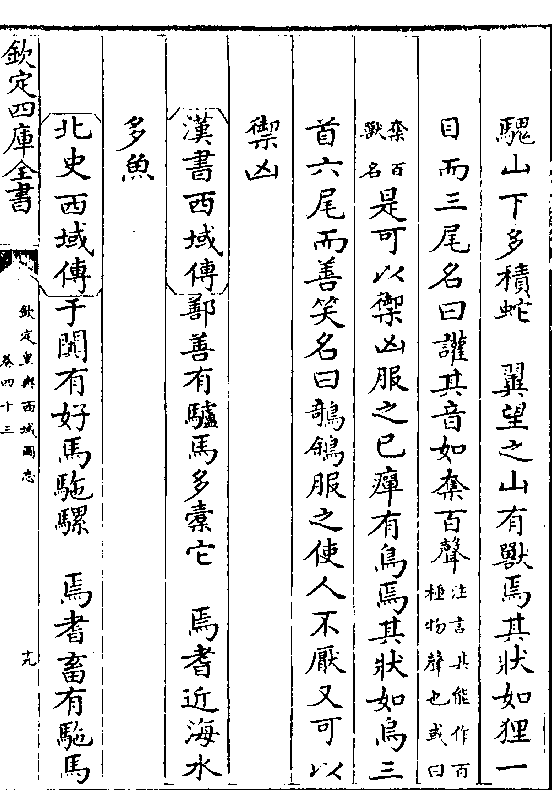 騩山下多積蛇　翼望之山有獸焉其狀如狸一
目而三尾名曰讙其音如奪百聲注言其能作百種物聲也或曰
奪百獸名是可以禦凶服之已癉有鳥焉其狀如烏三
首六尾而善笑名曰鵸鵌服之使人不厭又可以
禦凶
漢書西域傳鄯善有驢馬多橐它　焉耆近海水
多魚
北史西域傳于闐有好馬駞騾　焉耆畜有駞馬
欽定四庫全書
欽定皇輿西域圖志
卷四十三
十九